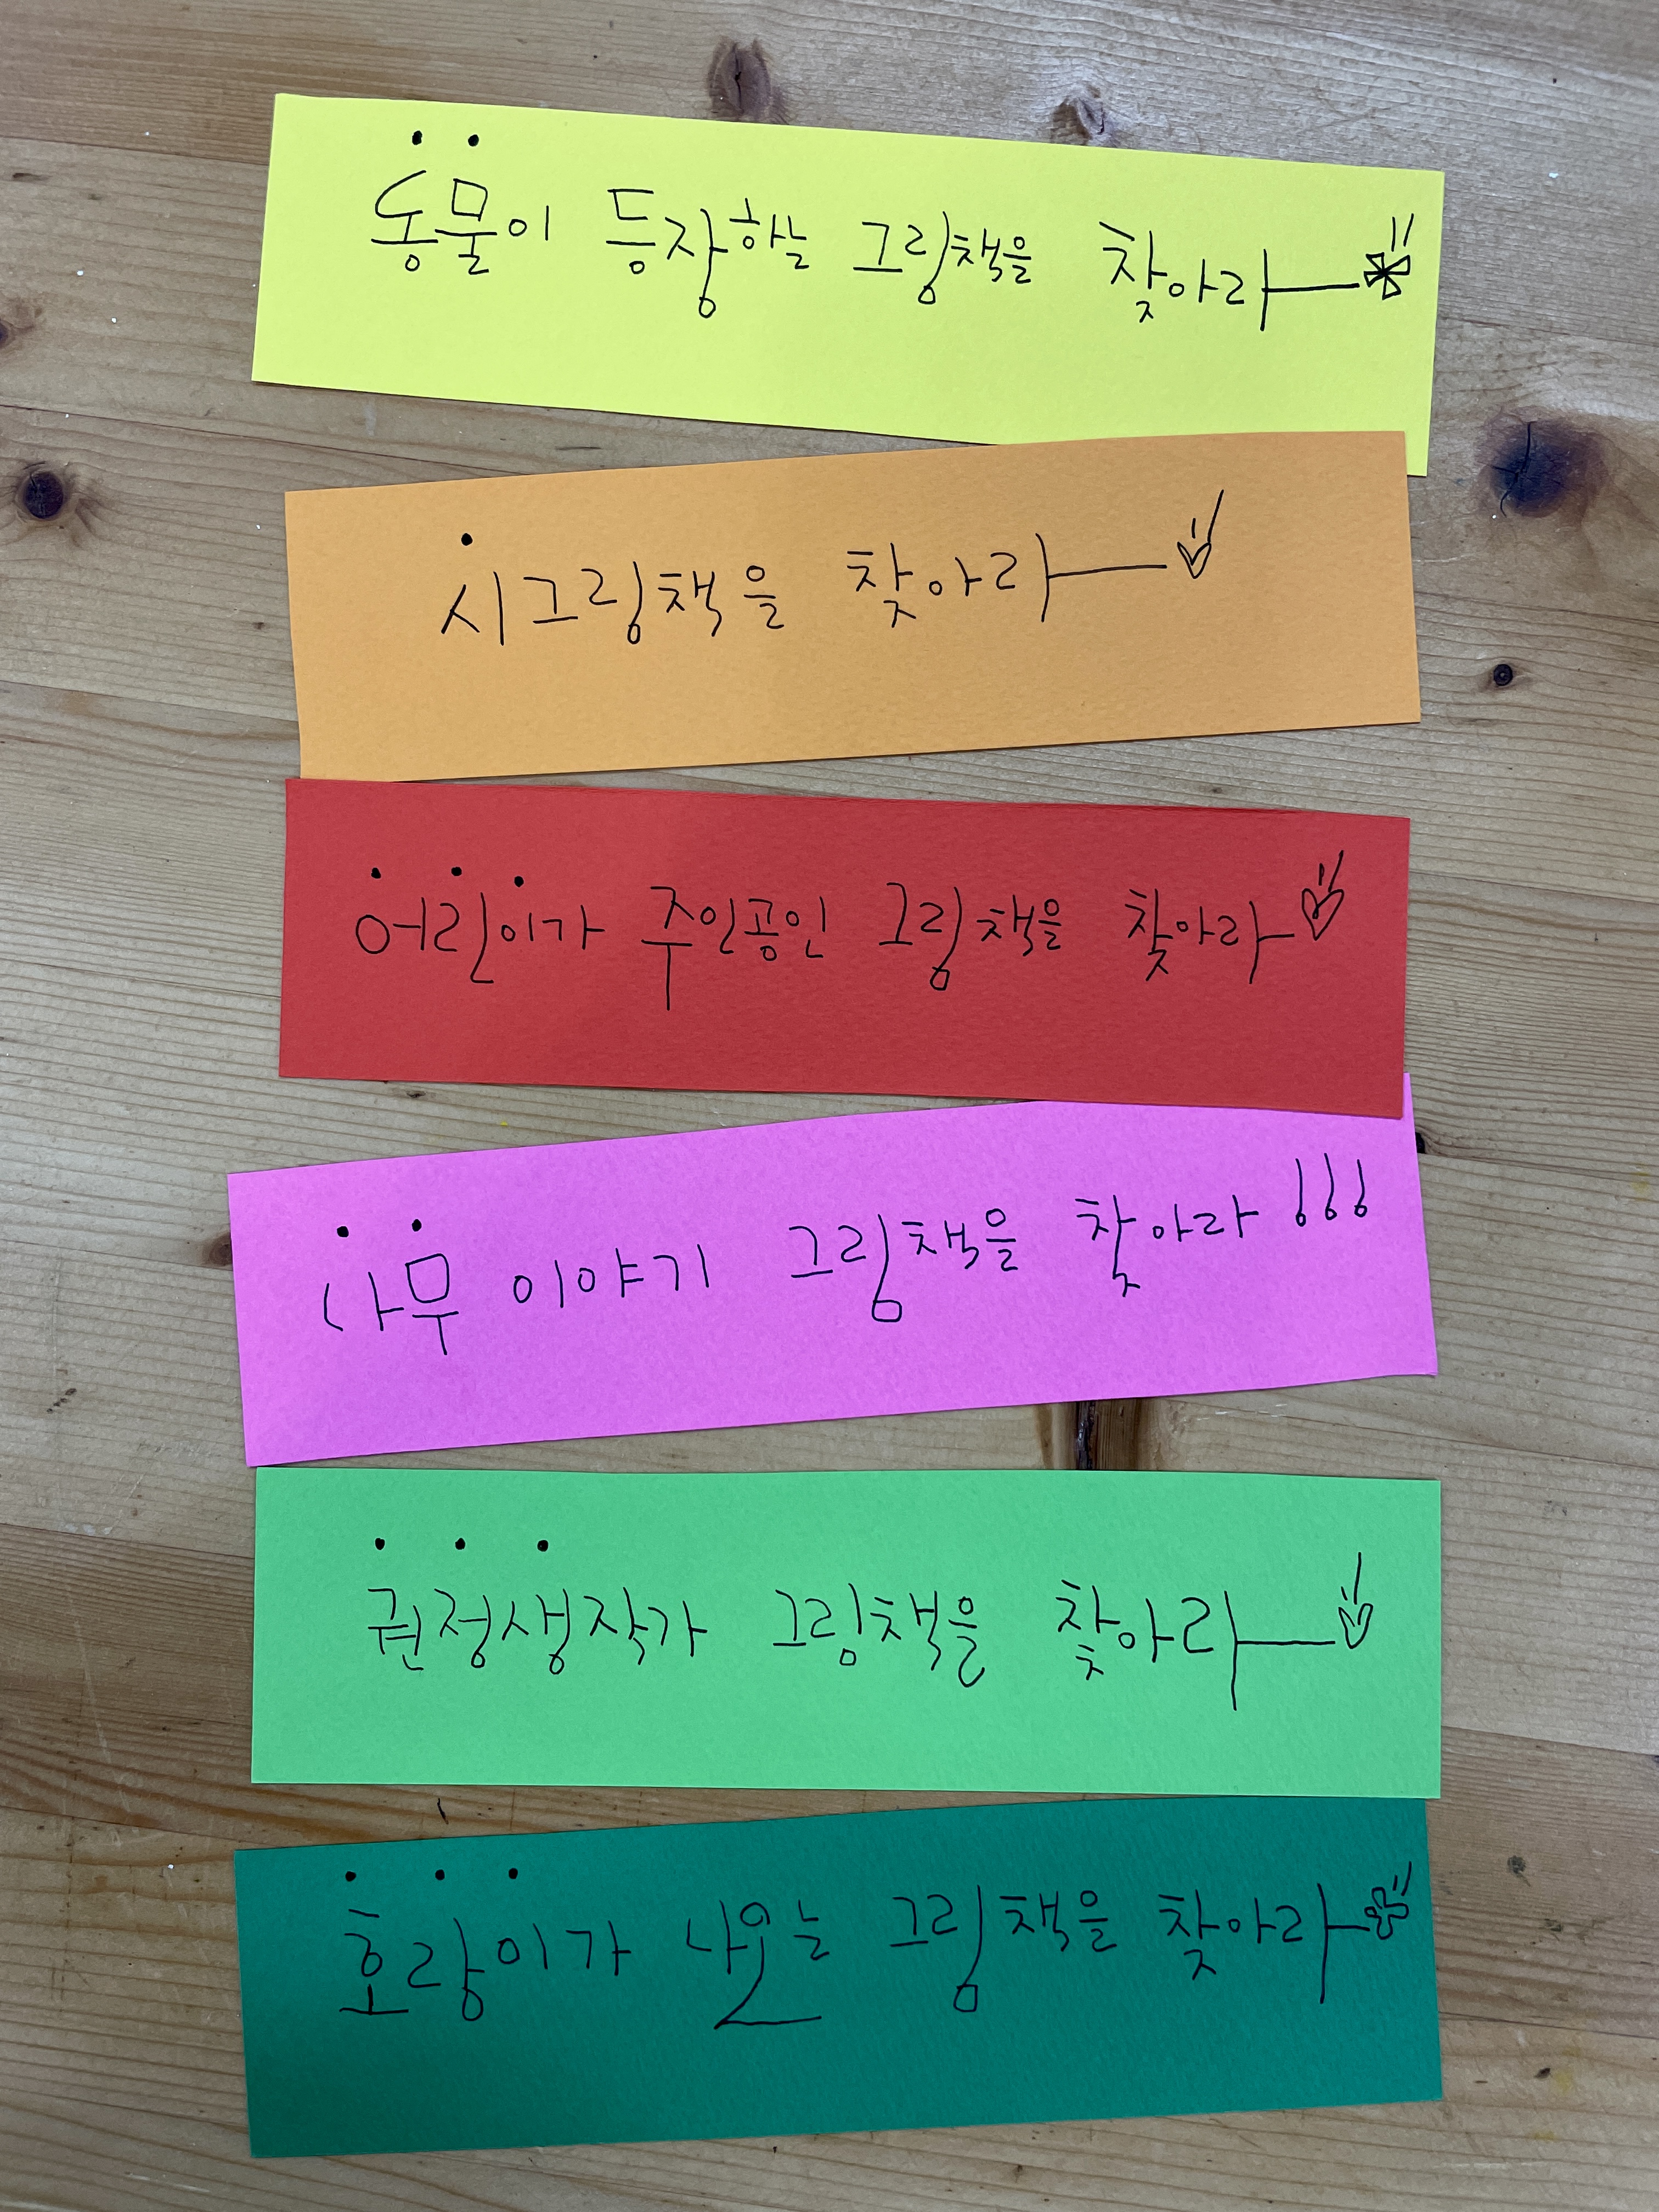 동물이 등장하는 그림책을 찾아라
시그림책을 찾아라
어린이가 주인공인 그림책을 찾아라
나무 이야기 그림책을 찾아라 !!!
권정생작가 그림책을 찾아라
호랑이가 나오는 그림책을 찾아라